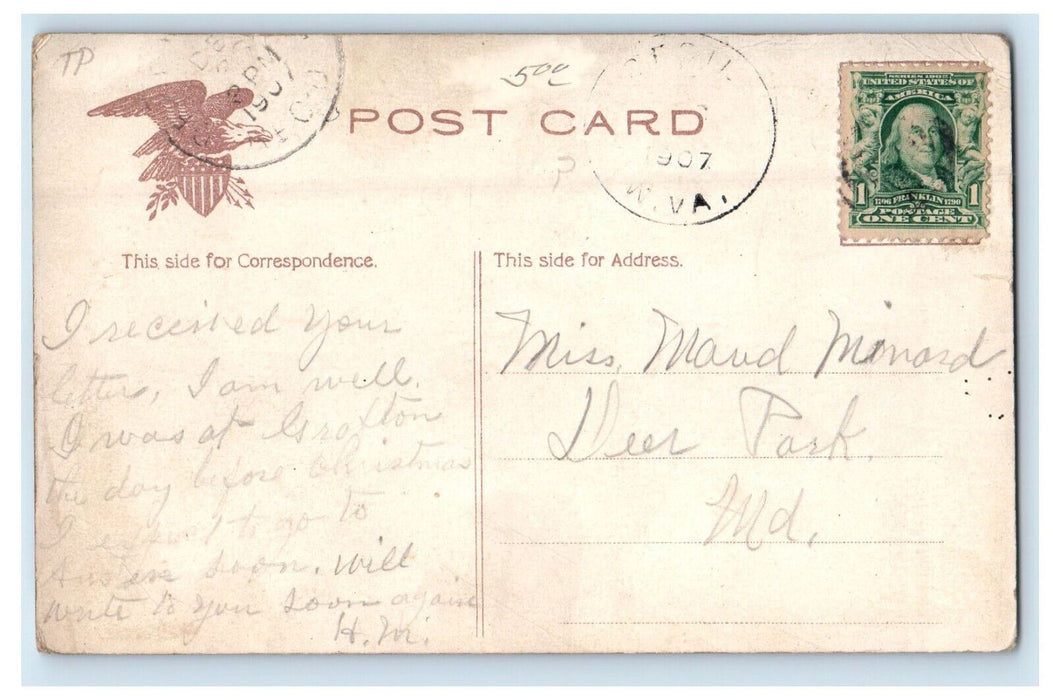 TP
500
DE
8 PM
1907
POST CARD
1907
W.VA.
SERIES 1902
UNITED STATES OF
AMERICA
1 1706 FRANKLIN 1790 1
POSTAGE
ONE CENT
This side for Correspondence.
This side for Address.
I received your
letter, I am well.
I was at Grafton
the day before Christmas
I expect to go to
Austen soon. will
write to you soon again
H.M.
Miss, Maud Minard
Deer Park.
Md.